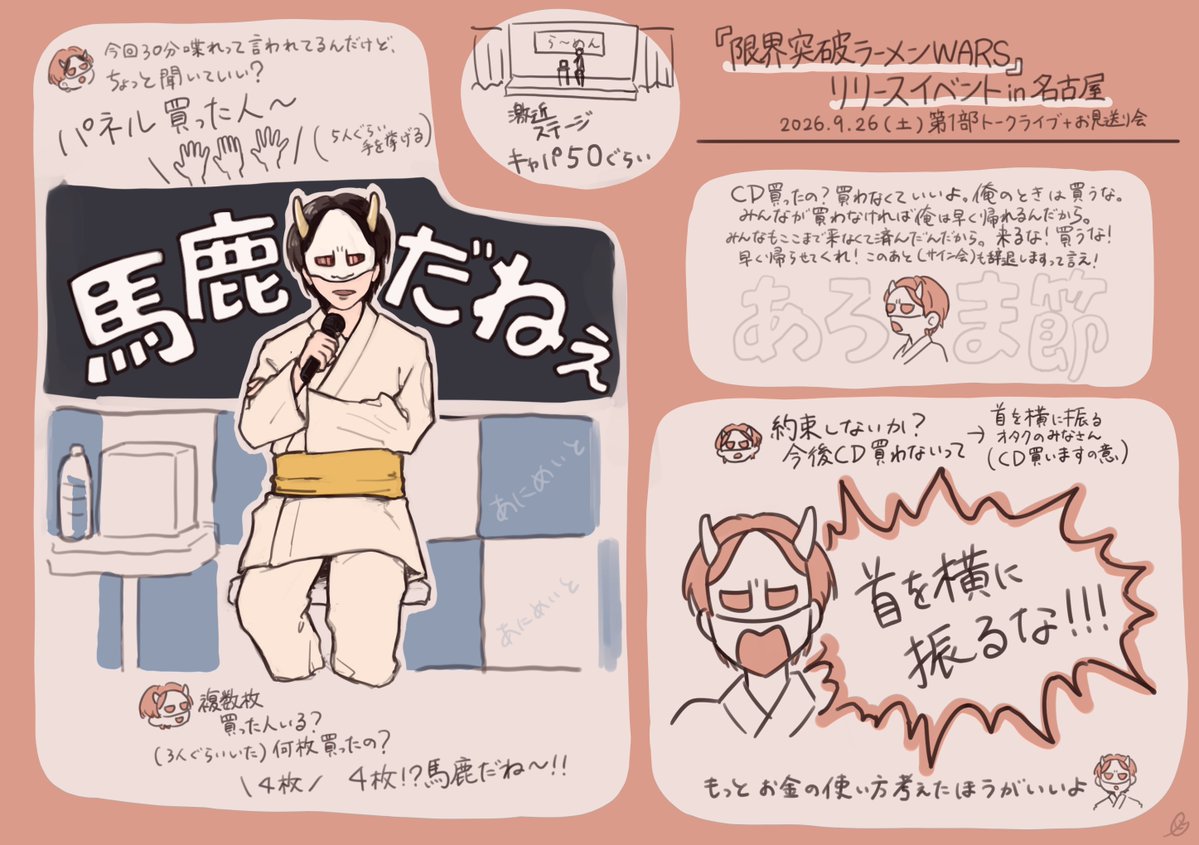 今回30分喋れって言われてるんだけど、
ちょっと聞いていい？
パネル買った人〜
(5人ぐらい
手を挙げる)
馬鹿だねぇ
あにめいと
あにめいと
複数枚
買った人いる？
(3人ぐらいいた)何枚買ったの？
\4枚/ 4枚!?馬鹿だね〜!!
らーめん
激近
ステージ
キャパ50ぐらい
『限界突破ラーメンWARS』
リリースイベントin名古屋
2026.9.26(土)第1部トークライブ+お見送り会
CD買ったの？買わなくていいよ。俺のときは買うな。
みんなが買わなければ俺は早く帰れるんだから。
みんなもここまで来なくて済んだんだから。来るな！買うな！
早く帰らせてくれ！このあと(サイン会)も辞退しますって言え！
あろま節
約束しないか？
今後CD買わないって
→首を横に振る
オタクのみなさん
(CD買いますの意)
首を横に
振るな!!!
もっとお金の使い方考えたほうがいいよ